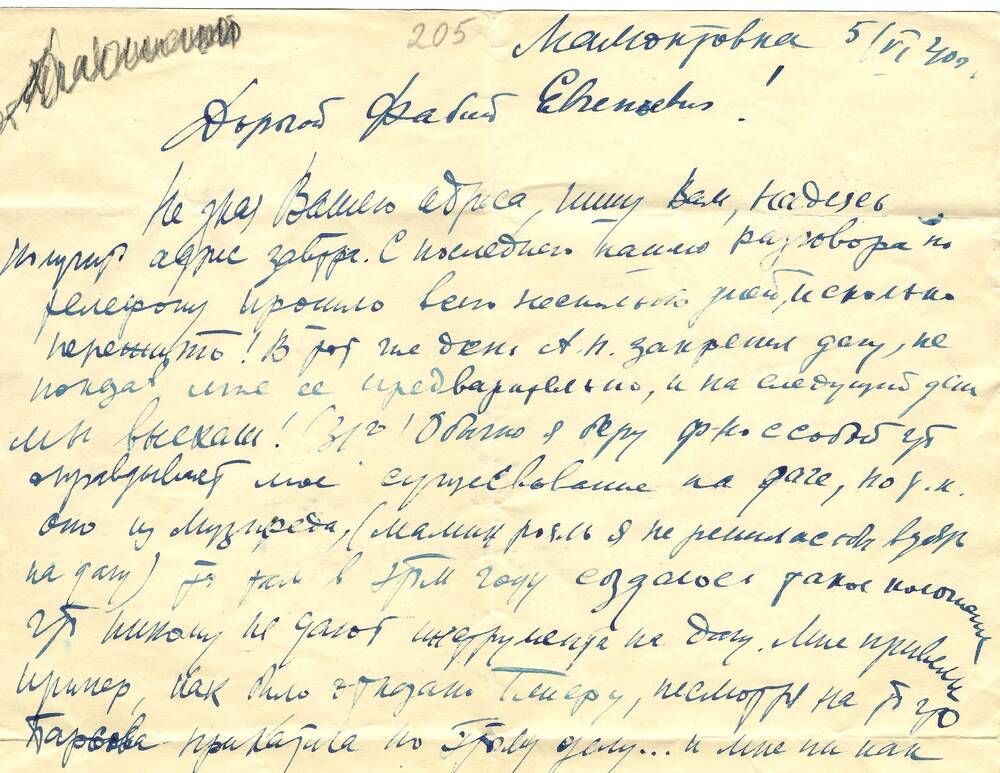 205
Мамонтовка 5/VI 40г.
Дорогой Фабий Евгеньевич!
Не зная Вашего адреса, пишу Вам, надеясь
получить адрес завтра. С последнего нашего разговора по
телефону прошло всего несколько дней, и сколько
пережито! В тот же день А.П. закрепил дачу, не
показав мне ее предварительно, и на следующий день
мы выехали! Обычно я беру ф-но с собой что
оправдывает мое существование на даче, но т.к.
оно из Музпреда, (мамин рояль я не решилась бы взять
на дачу) то там в этом году создалось такое положение
что никому не дают инструмента на дачу. Мне привели
пример, как было отказано несмотря на то что
приходила по этому делу... и мне ни как